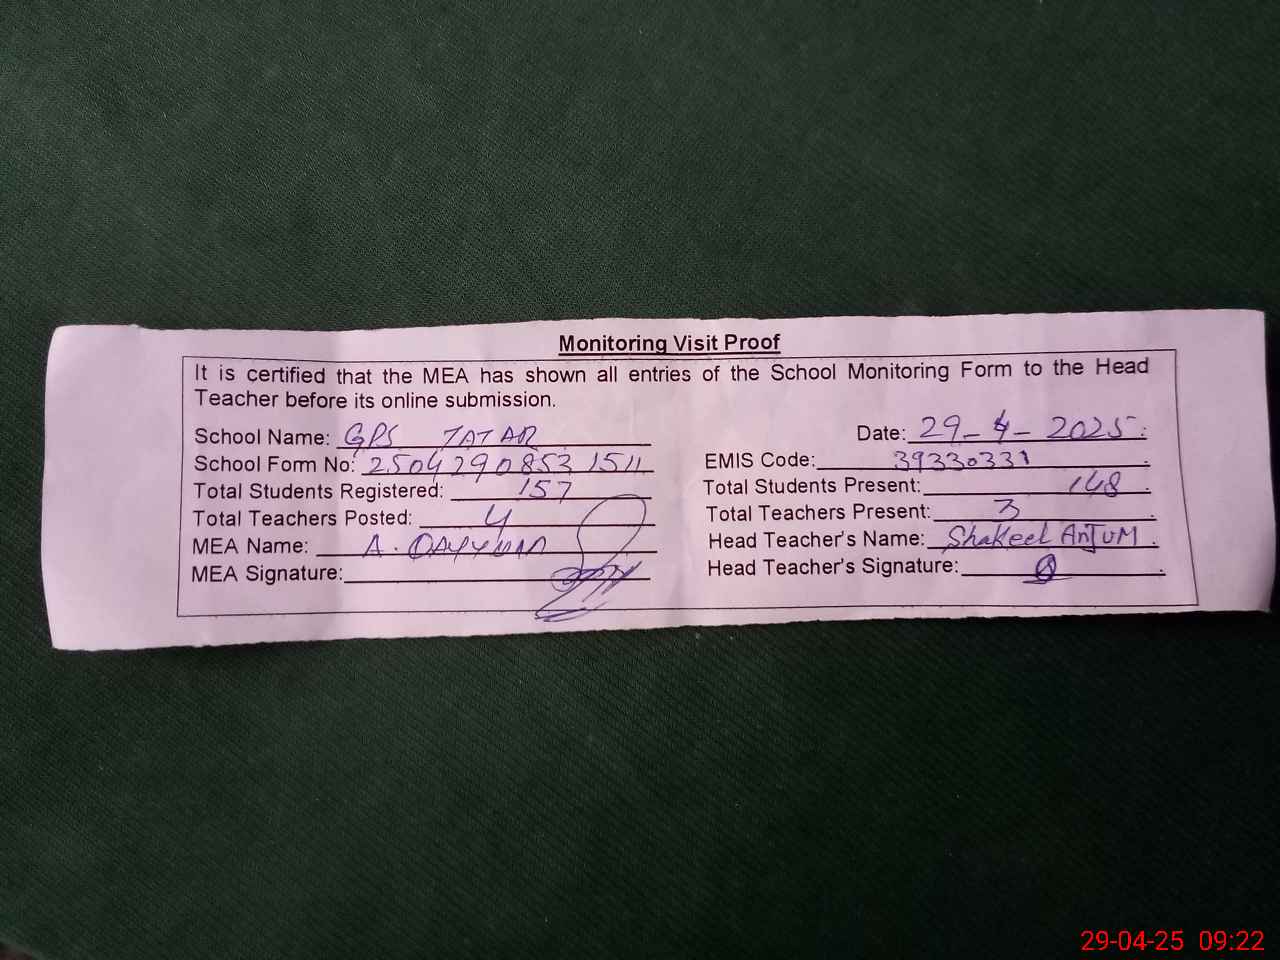 Monitoring Visit Proof
It is certified that the MEA has shown all entries of the School Monitoring Form to the Head
Teacher before its online submission.
School Name: GPS TATAR Date: 29-4-2025
School Form No: 25042908531511 EMIS Code: 39330331
Total Students Registered: 157 Total Students Present: 148
Total Teachers Posted: 4 Total Teachers Present: 3
MEA Name: A. QAYYUM Head Teacher's Name: Shakeel AnJUM
MEA Signature: Head Teacher's Signature:
29-04-25 09:22